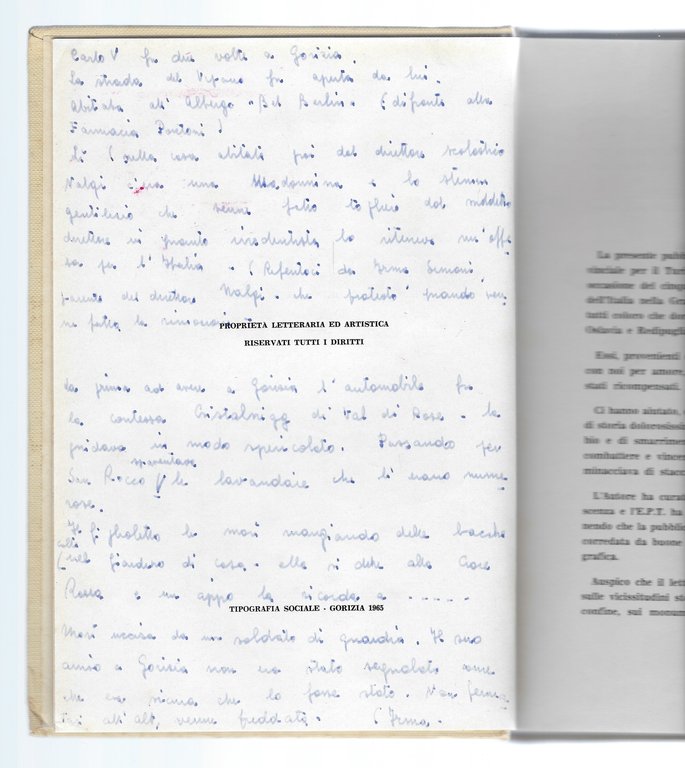 Carlo V fu due volte a Gorizia.
La strada del Vipano fu aperta da lui.
Abitava all' Albergo "Bel Berlin" (difronte alla
Farmacia Pontoni)
Li (sulla casa abitata poi dal direttore scolastico
Nalgi c'era una Madonnina e lo stemma
gentilizio che venne fatto togliere dal suddetto
direttore in quanto irredentista lo riteneva un'offe
sa per l'Italia - (Riferitoci da Irma Simoni
parente del direttore Nalgi - che protestò quando ven
ne fatta la rimozione
PROPRIETÀ LETTERARIA ED ARTISTICA
RISERVATI TUTTI I DIRITTI
La prima ad avere a Gorizia l'automobile fu
la contessa di Val di Rose - la
guidava in modo spericolato. Passando per
spaventava
San Rocco le lavandaie che lì erano nume
rose.
Il figlioletto le morì mangiando delle bacche
(nel giardino di casa - ella si dette alla Croce
Rossa e un la ricorda a - - - - -
TIPOGRAFIA SOCIALE - GORIZIA 1965
Morì uccisa da un soldato di guardia. Il suo
arrivo a Gorizia non era stato segnalato come
che era sicura che lo fosse stato. Non ferma
tasi all'alt, venne freddata. (Irma.
La presente
vinciale per il
occasione del
dell'Italia nella
tutti coloro che
Oslavia e
Essi, provenienti
con noi per amore,
stati ricompensati.
Ci hanno aiutato,
di storia
bio e di
combattere e
minacciava di
L'Autore ha
scenza e l'E.P.T. ha
nendo che la
corredata da buone
grafica.
Auspico che il
sulle vicissitudini
confine, sui